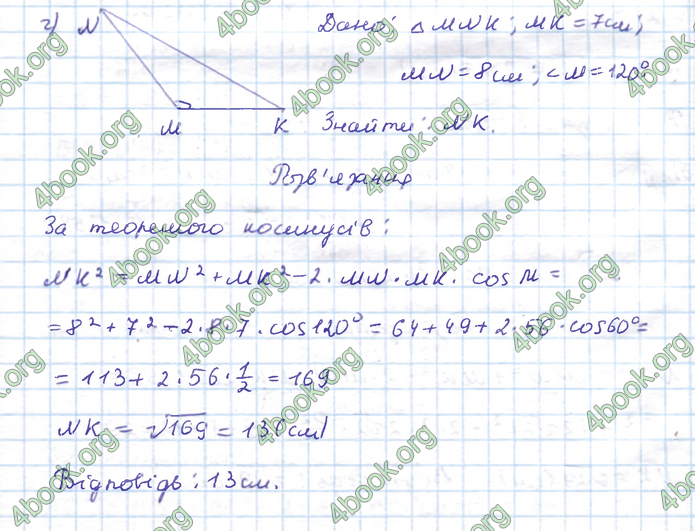 г) N
Дано: △ MNK; MK = 7см;
MN = 8см; ∠M = 120°
M K Знайти: NK.
Розв'язання
За теоремою косинусів:
NK² = MN² + MK² - 2 · MN · MK · cos M =
= 8² + 7² - 2 · 8 · 7 · cos120° = 64 + 49 + 2 · 56 · cos60° =
= 113 + 2 · 56 · 1/2 = 169
NK = √169 = 13(см)
Відповідь: 13см.
4book.org